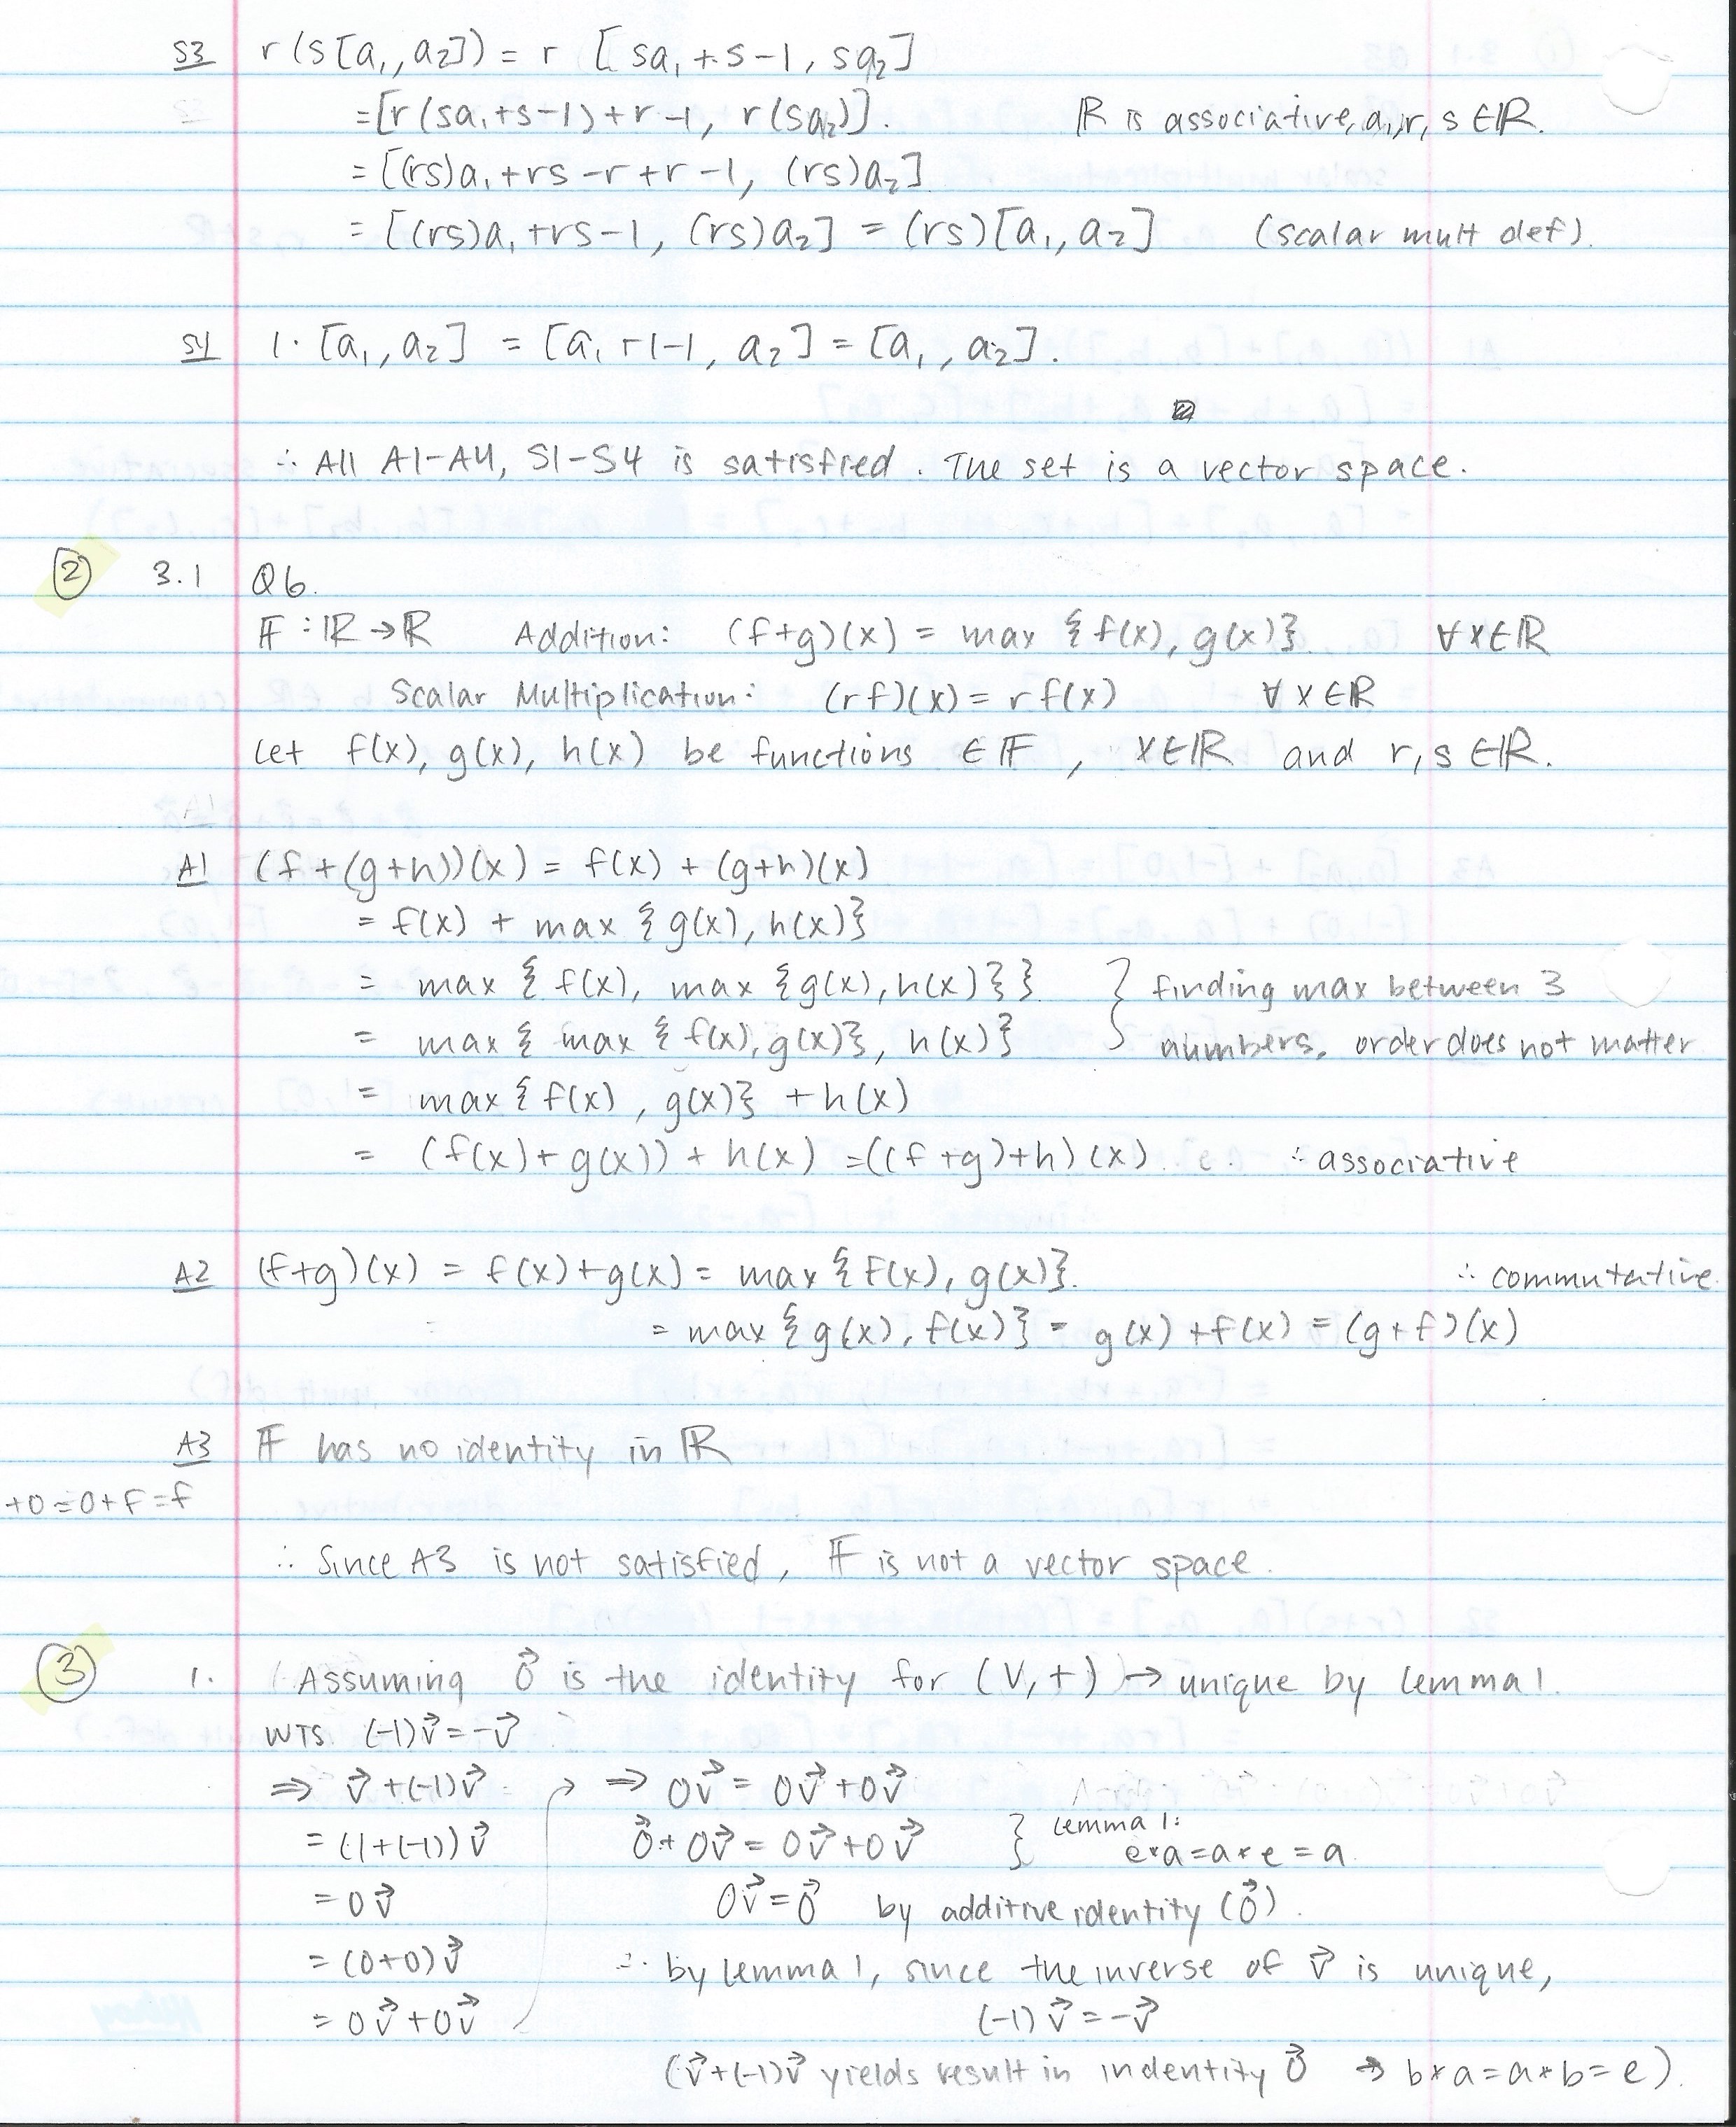 S3 r(s[a₁, a₂]) = r [sa₁ + s - 1, sa₂]
= [r(sa₁ + s - 1) + r - 1, r(sa₂)]. ℝ is associative, a₁, r, s ∈ ℝ.
= [(rs)a₁ + rs - r + r - 1, (rs)a₂]
= [(rs)a₁ + rs - 1, (rs)a₂] = (rs)[a₁, a₂] (scalar mult def).
S4 1·[a₁, a₂] = [a₁ + 1 - 1, a₂] = [a₁, a₂].
∴ All A1-A4, S1-S4 is satisfied. The set is a vector space.
② 3.1 Q6.
𝔽 : ℝ → ℝ Addition: (f+g)(x) = max {f(x), g(x)}. ∀x∈ℝ
Scalar Multiplication: (rf)(x) = r f(x) ∀x∈ℝ
Let f(x), g(x), h(x) be functions ∈ 𝔽, x∈ℝ and r, s ∈ℝ.
A1 (f+(g+h))(x) = f(x) + (g+h)(x)
= f(x) + max {g(x), h(x)}
= max {f(x), max {g(x), h(x)}} } finding max between 3
= max {max {f(x), g(x)}, h(x)} numbers, order does not matter
= max {f(x), g(x)} + h(x)
= (f(x)+g(x)) + h(x) = ((f+g)+h)(x). ∴ associative
A2 (f+g)(x) = f(x)+g(x) = max {f(x), g(x)}. ∴ commutative
= max {g(x), f(x)} = g(x) + f(x) = (g+f)(x)
A3 𝔽 has no identity in ℝ
+0=0+f=f
∴ Since A3 is not satisfied, 𝔽 is not a vector space.
③ 1. Assuming 0⃗ is the identity for (V, +) → unique by lemma 1.
WTS (-1)v⃗ = -v⃗
⇒ v⃗ + (-1)v⃗ ⇒ 0v⃗ = 0v⃗ + 0v⃗
= (1+(-1))v⃗ 0⃗ + 0v⃗ = 0v⃗ + 0v⃗ } Lemma 1: e*a=a*e=a
= 0v⃗ 0v⃗ = 0⃗ by additive identity (0⃗).
= (0+0)v⃗ ∴ by Lemma 1, since the inverse of v⃗ is unique,
= 0v⃗ + 0v⃗ (-1)v⃗ = -v⃗
(v⃗+(-1)v⃗ yields result in indentity 0⃗ → b*a=a*b=e).